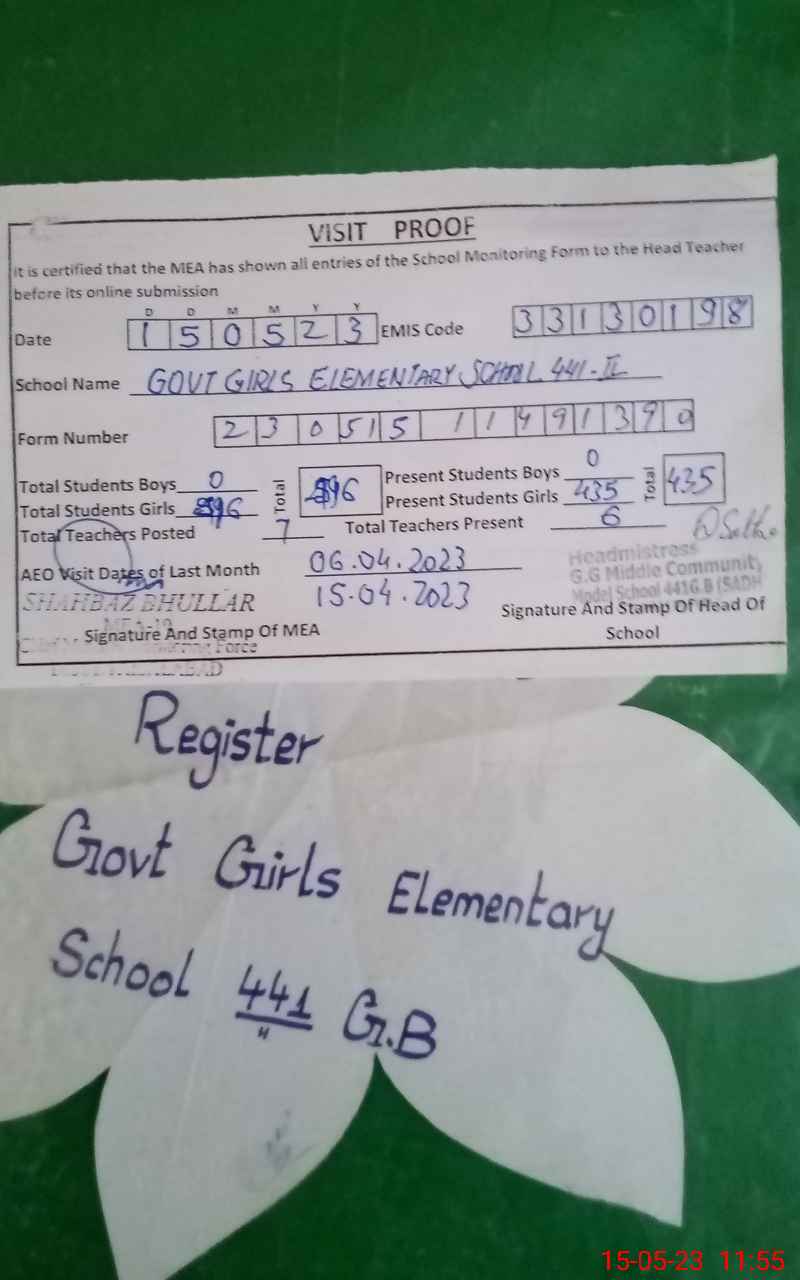 VISIT PROOF
It is certified that the MEA has shown all entries of the School Monitoring Form to the Head Teacher
before its online submission
D D M M Y Y
Date 1 5 0 5 2 3 EMIS Code 3 3 1 3 0 1 9 8
School Name GOVT GIRLS ELEMENTARY SCHOOL 441-II
Form Number 2 3 0 5 1 5 1 1 4 9 1 3 9 0
Total Students Boys 0 Total 496 Present Students Boys 0 Total 435
Total Students Girls 496 Present Students Girls 435
Total Teachers Posted 7 Total Teachers Present 6
AEO Visit Dates of Last Month 06.04.2023
15.04.2023
SHAHBAZ BHULLAR
Signature And Stamp Of MEA
Headmistress
G.G Middle Community
Model School 441G.B (SADH
Signature And Stamp Of Head Of
School
Register
Govt Girls Elementary
School 441 G.B
15-05-23 11:55